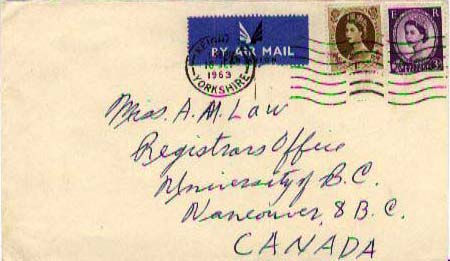 BY AIR MAIL
1963
YORKSHIRE
E R
Miss. A. M. Law
Registrars Office
University of B.C.
Vancouver, 8 B.C.
CANADA